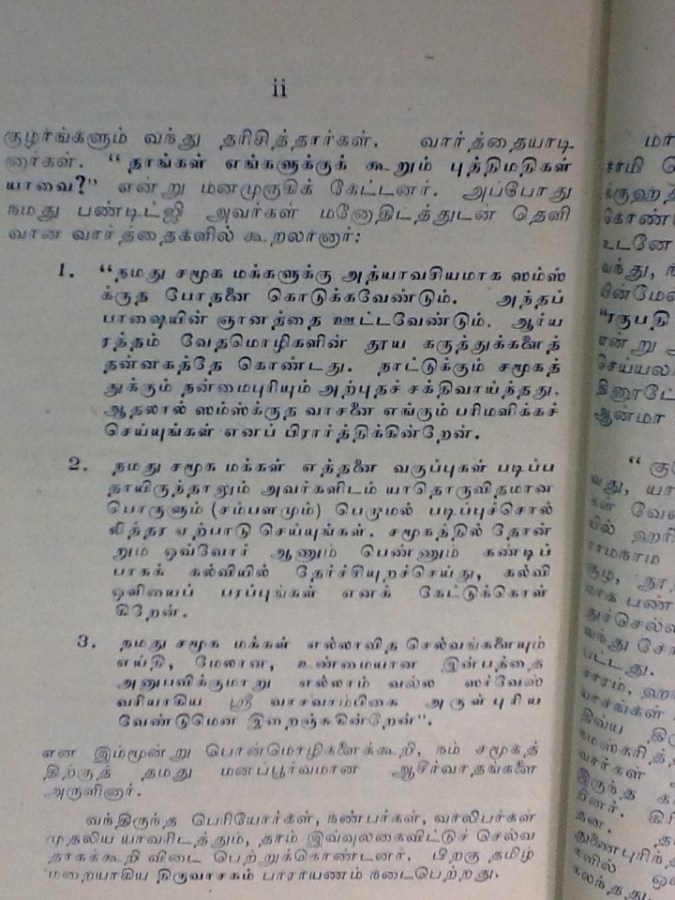 ii
குழாங்களும் வந்து தரிசித்தார்கள். வார்த்தையாடி
னார்கள். “ தாங்கள் எங்களுக்குக் கூறும் புத்திமதிகள்
யாவை?” என்று மனமுருகிக் கேட்டனர். அப்போது
நமது பண்டிட்ஜி அவர்கள் மனோதிடத்துடன் தெளி
வான வார்த்தைகளில் கூறலானார்:
1. “நமது சமூக மக்களுக்கு அத்யாவசியமாக ஸம்ஸ்
க்ருத போதனை கொடுக்கவேண்டும். அந்தப்
பாஷையின் ஞானத்தை ஊட்டவேண்டும். ஆர்ய
ரத்தம் வேதமொழிகளின் தூய கருத்துக்களைத்
தன்னகத்தே கொண்டது. நாட்டுக்கும் சமூகத்
துக்கும் நன்மைபுரியும் அற்புதச் சக்திவாய்ந்தது.
ஆதலால் ஸம்ஸ்க்ருத வாசனை எங்கும் பரிமளிக்கச்
செய்யுங்கள் எனப் பிரார்த்திக்கின்றேன்.
2. நமது சமூக மக்கள் எத்தனை வகுப்புகள் படிப்ப
தாயிருந்தாலும் அவர்களிடம் யாதொருவிதமான
பொருளும் (சம்பளமும்) பெறாமல் படிப்புச்சொல்
லித்தர ஏற்பாடு செய்யுங்கள். சமூகத்தில் தோன்
றும் ஒவ்வோர் ஆணும் பெண்ணும் கண்டிப்
பாகக் கல்வியில் தேர்ச்சியுறச்செய்து, கல்வி
ஒளியைப் பரப்புங்கள் எனக் கேட்டுக்கொள்
கிறேன்.
3. நமது சமூக மக்கள் எல்லாவித செல்வங்களையும்
எய்தி, மேலான, உண்மையான இன்பத்தை
அனுபவிக்குமாறு எல்லாம் வல்ல ஸர்வேஸ்
வரியாகிய ஸ்ரீ வாசவாம்பிகை அருள்புரிய
வேண்டுமென இறைஞ்சுகின்றேன்”.
என இம்மூன்று பொன்மொழிகளைக்கூறி, நம் சமூகத்
திற்குத் தமது மனப்பூர்வமான ஆசீர்வாதங்களை
அருளினார்.
வந்திருந்த பெரியோர்கள், நண்பர்கள், வாலிபர்கள்
முதலிய யாவரிடத்தும், தாம் இவ்வுலகைவிட்டுச் செல்வ
தாகக்கூறி விடை பெற்றுக்கொண்டனர். பிறகு தமிழ்
மறையாகிய திருவாசகம் பாராயணம் நடைபெற்றது.